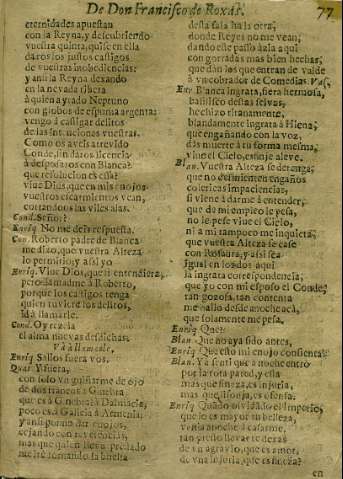 De Don Francisco de Roxas.
77
eternidades apuestan
con la Reyna, y descubriendo
vuestra quinta, quise en ella
daros los justos castigos
de vuestras inobediencias:
y assi la Reyna dexando
en la nevada ribera
à quien ayrado Neptuno
con globos de espuma argenta:
vengo à castigar delitos
de las intenciones vuestras.
Como os aveis atrevido
Conde, sin daros licencia
à desposaros con Blanca?
que resolucion es essa?
vive Dios, que en mis enojos
vuestros escarmientos vean,
cortandoos las viles alas.
Cond. Señor?
Enriq. No me deis respuesta.
Con. Roberto padre de Blanca
me dixo, que vuestra Alteza
lo permitió; y assi yo
Enriq. Vive Dios, que si entendiera,
pero llamadme à Roberto,
porque los castigos tenga
quien tuviere los delitos,
id à llamarle.
Cond. Oy rezela
el alma nuevas desdichas.
Và à llamarle.
Enriq. Salíos fuera vos.
Quar. Y fuera,
con solo un guiñarme de ojo
de dos trancos à Ginebra
que es à Ginebra? à Dalmacia,
poco es: à Galicia à Armenia;
y assi por no dar enojos,
dexando con reverencias,
mas que quien lleva prestado
me iré tomando la
della sala ha la otra;
donde Reyes no me vean,
dandoelle passo à la aqui
con gorradas mas bien hechas,
que dan los que entran de valde
à un cobrador de Comedias. Vas.
Enr. Blanca ingrata, fiera hermosa,
basilisco destas selvas,
hechizo tiranamente,
blandamente ingrata Hiena,
que engañando con la voz,
dàs muerte à tu forma mesma,
vive el Cielo, enemiga aleve.
Blan. Vuestra Alteza se detenga;
que no desmienten engaños
colericas impaciencias,
si viene à darme à entender,
que de mi empleo le pesa,
no le pese vive el Cielo,
ni a mi tampoco me inquieta,
que vuestra Alteza se case
con Rosaura, y assi sea
igual en los dos aqui
la ingrata correspondencia,
que yo con mi esposo el Conde,
tan gozosa, tan contenta
me hallo desde anocheacà,
que solamente me pesa.
Enriq. Que?
Blan. Que no aya sido antes,
Enriq. Que esto mi enojo consienta!
Blan. Ya sentì que à noche entro
por la rota pared, y esta
mas que fineza, es injuria,
mas que lisonja, es ofensa.
Enriq. Quando olvidado el Imperio,
que lo es mayor tu belleza,
venia anoche à casarme,
tan presto llevarte dexas
de un agravio, que es amor,
de una injuria, que es fineza?
en